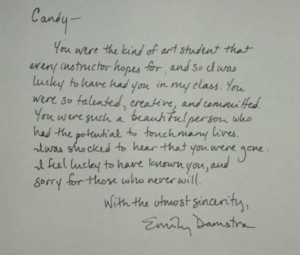 Candy—
You were the kind of art student that
every instructor hopes for, and so I was
lucky to have had you in my class. You
were so talented, creative, and committed.
You were such a beautiful person who
had the potential to touch many lives.
I was shocked to hear that you were gone.
I feel lucky to have known you, and
sorry for those who never will.
With the utmost sincerity,
Emily Damstra